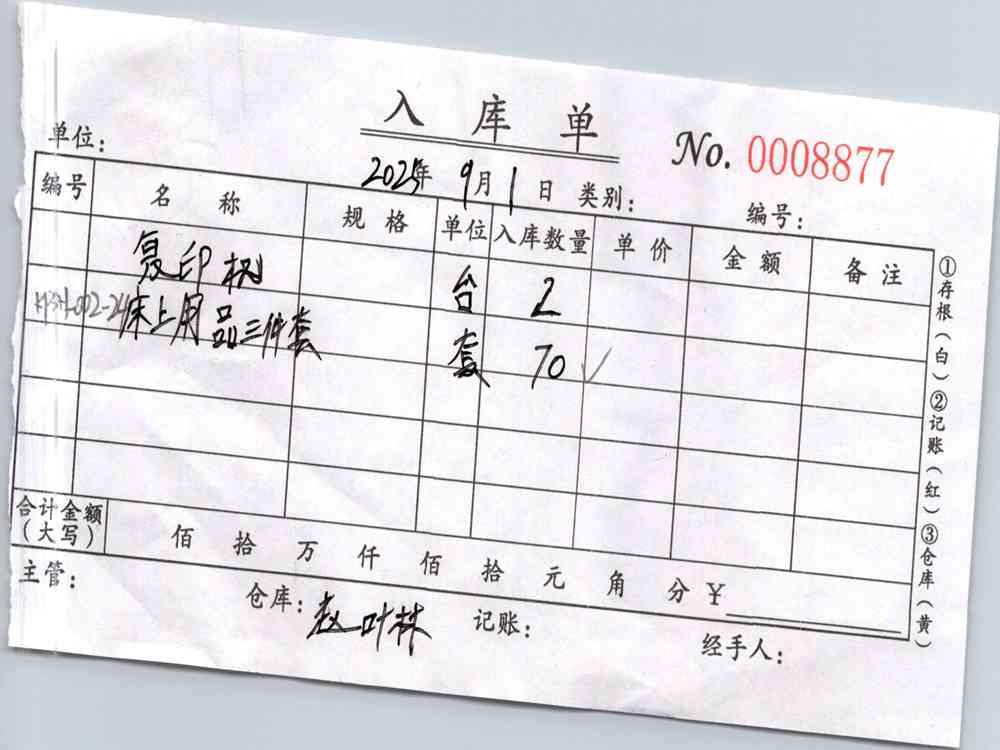 入库单
No. 0008877
单位:
2025年 9月 1日 类别: 编号:
编号 名称 规格 单位 入库数量 单价 金额 备注
复印机 台 2
床上用品三件套 套 70 ✓
合计金额(大写) 佰 拾 万 仟 佰 拾 元 角 分 ¥
主管: 仓库: 赵叶林 记账: 经手人:
①存根(白)②记账(红)③仓库(黄)